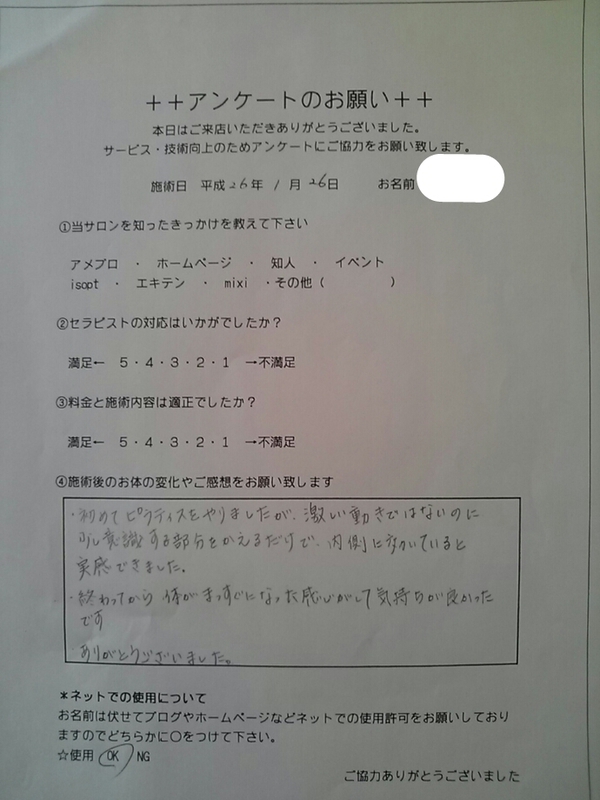 ++アンケートのお願い++
本日はご来店いただきありがとうございました。
サービス・技術向上のためアンケートにご協力をお願い致します。
施術日 平成26年 1月 26日 お名前
①当サロンを知ったきっかけを教えて下さい
アメブロ ・ ホームページ ・ 知人 ・ イベント
isopt ・ エキテン ・ mixi ・その他( )
②セラピストの対応はいかがでしたか?
満足← 5・4・3・2・1 →不満足
③料金と施術内容は適正でしたか?
満足← 5・4・3・2・1 →不満足
④施術後のお体の変化やご感想をお願い致します
・初めてピラティスをやりましたが、激しい動きではないのに
少し意識する部分をかえるだけで、内側に効いていると
実感できました。
・終わってから 体がまっすぐになった感じがして気持ちが良かった
です
ありがとうございました。
*ネットでの使用について
お名前は伏せてブログやホームページなどネットでの使用許可をお願いしており
ますのでどちらかに〇をつけて下さい。
☆使用 OK NG
ご協力ありがとうございました